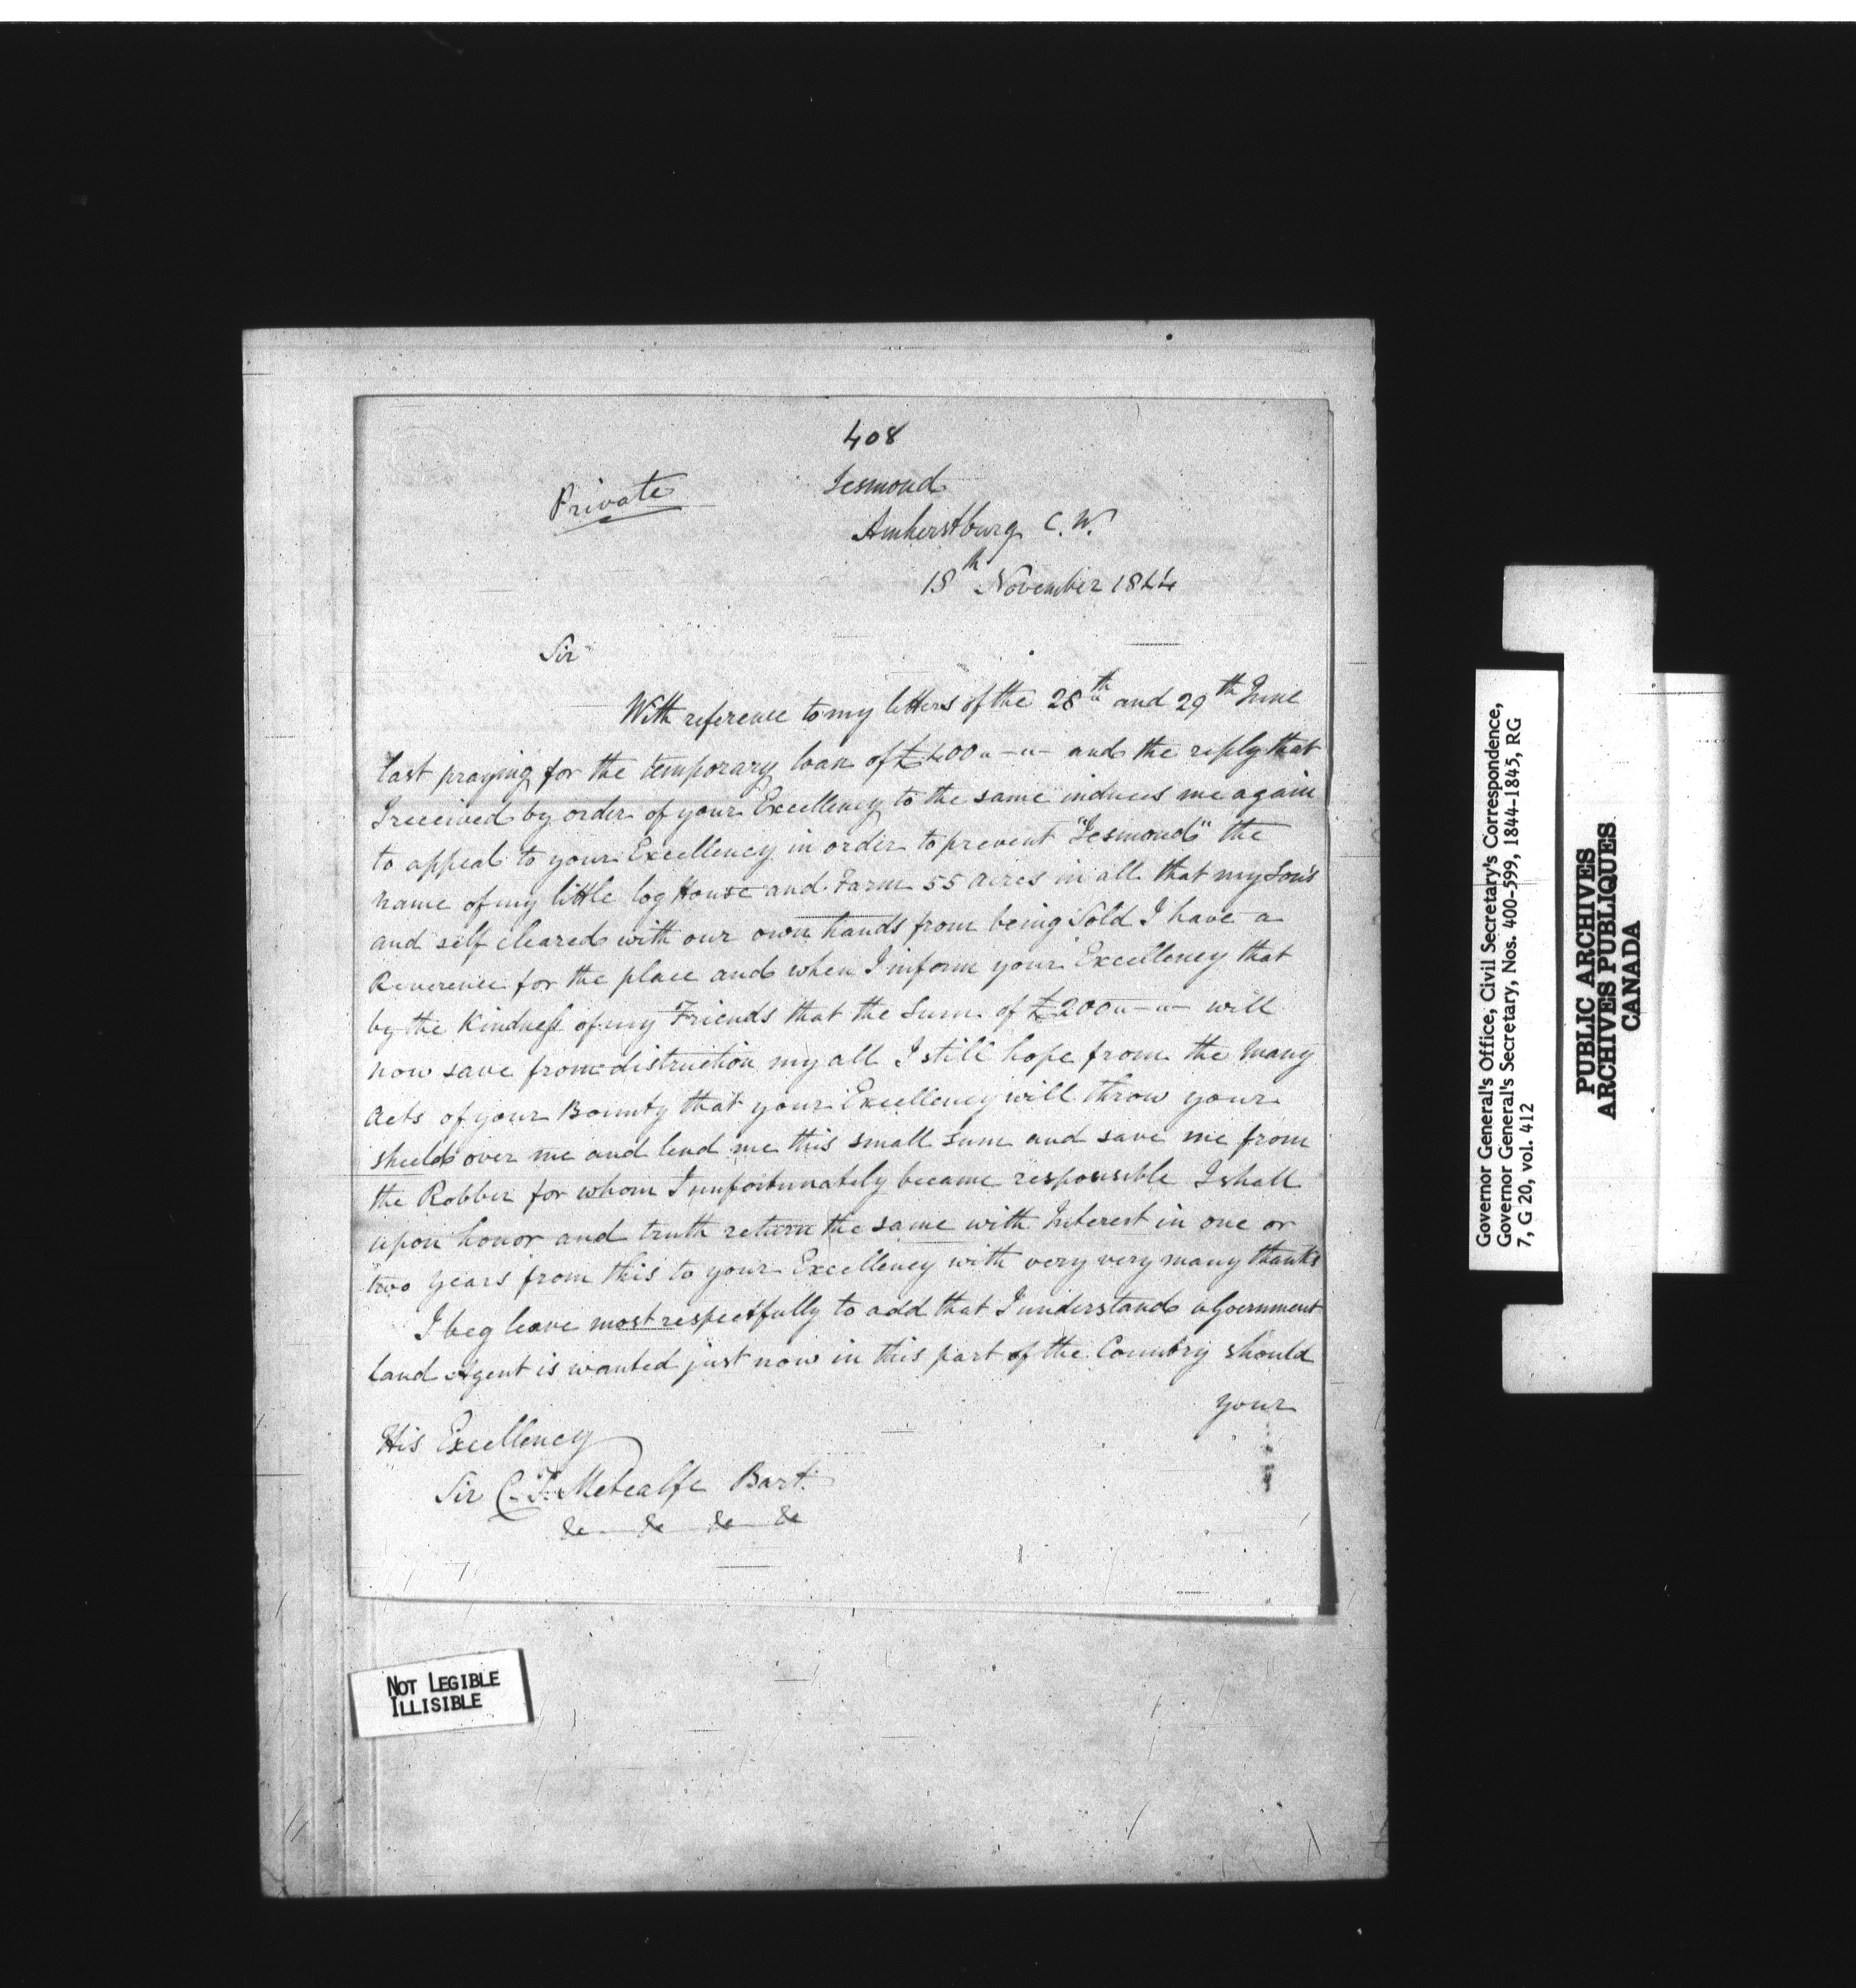 408
Private
Jesmond
Amherstburg C. W.
18th November 1844
Sir
With reference to my letters of the 28th and 29th June
last praying for the temporary loan of £400 "-"- and the reply that
I received by order of your Excellency to the same induces me again
to appeal to your Excellency in order to prevent "Jesmond" the
name of my little log House and Farm 55 acres in all that my Son's
and self cleared with our own hands from being Sold I have a
Reverence for the place and when I inform your Excellency that
by the Kindness of my Friends that the Sum of £200 "-"- will
now save from distruction my all I still hope from the many
acts of your Bounty that your Excellency will throw your
shield over me and lend me this small sum and save me from
the Robber for whom I unfortunately became responsible I shall
upon honor and truth return the same with Interest in one or
two years from this to your Excellency with very very many thanks
I beg leave most respectfully to add that I understand a Government
Land Agent is wanted just now in this part of the Country should
your
His Excellency
Sir C. T. Metcalfe Bart.
&c &c &c &c
NOT LEGIBLE
ILLISIBLE
Governor General's Office, Civil Secretary's Correspondence,
Governor General's Secretary, Nos. 400-599, 1844-1845, RG
7, G 20, vol. 412
PUBLIC ARCHIVES
ARCHIVES PUBLIQUES
CANADA